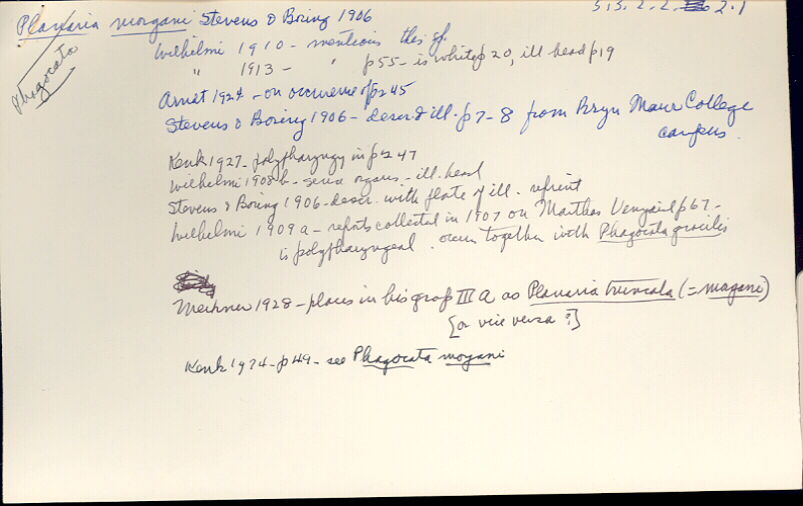 Planaria morgani Stevens & Boring 1906
5.5.2.2. 2.1
Phagocata
Wilhelmi 1910 - mentions this sp.
" 1913 - " p55 - is white p 20, ill head p19
Arndt 1924 - on occurrence of p 45
Stevens & Boring 1906 - descr & ill. p7-8 from Bryn Mawr College
campus.
Kenk 1927 - polypharyngy in p 247
Wilhelmi 1908b - sense organs - ill. head
Stevens & Boring 1906 - descr. with plate of ill. reprint
Wilhelmi 1909a - reports collected in 1907 on Marthas Venyaird p67 -
is polypharyngeal. occurs together with Phagocata gracilis
Meixner 1928 - places in his group III a as Planaria truncata (= morgani)
[or vice versa ?]
Kenk 1974 - p49 - see Phagocata mogani